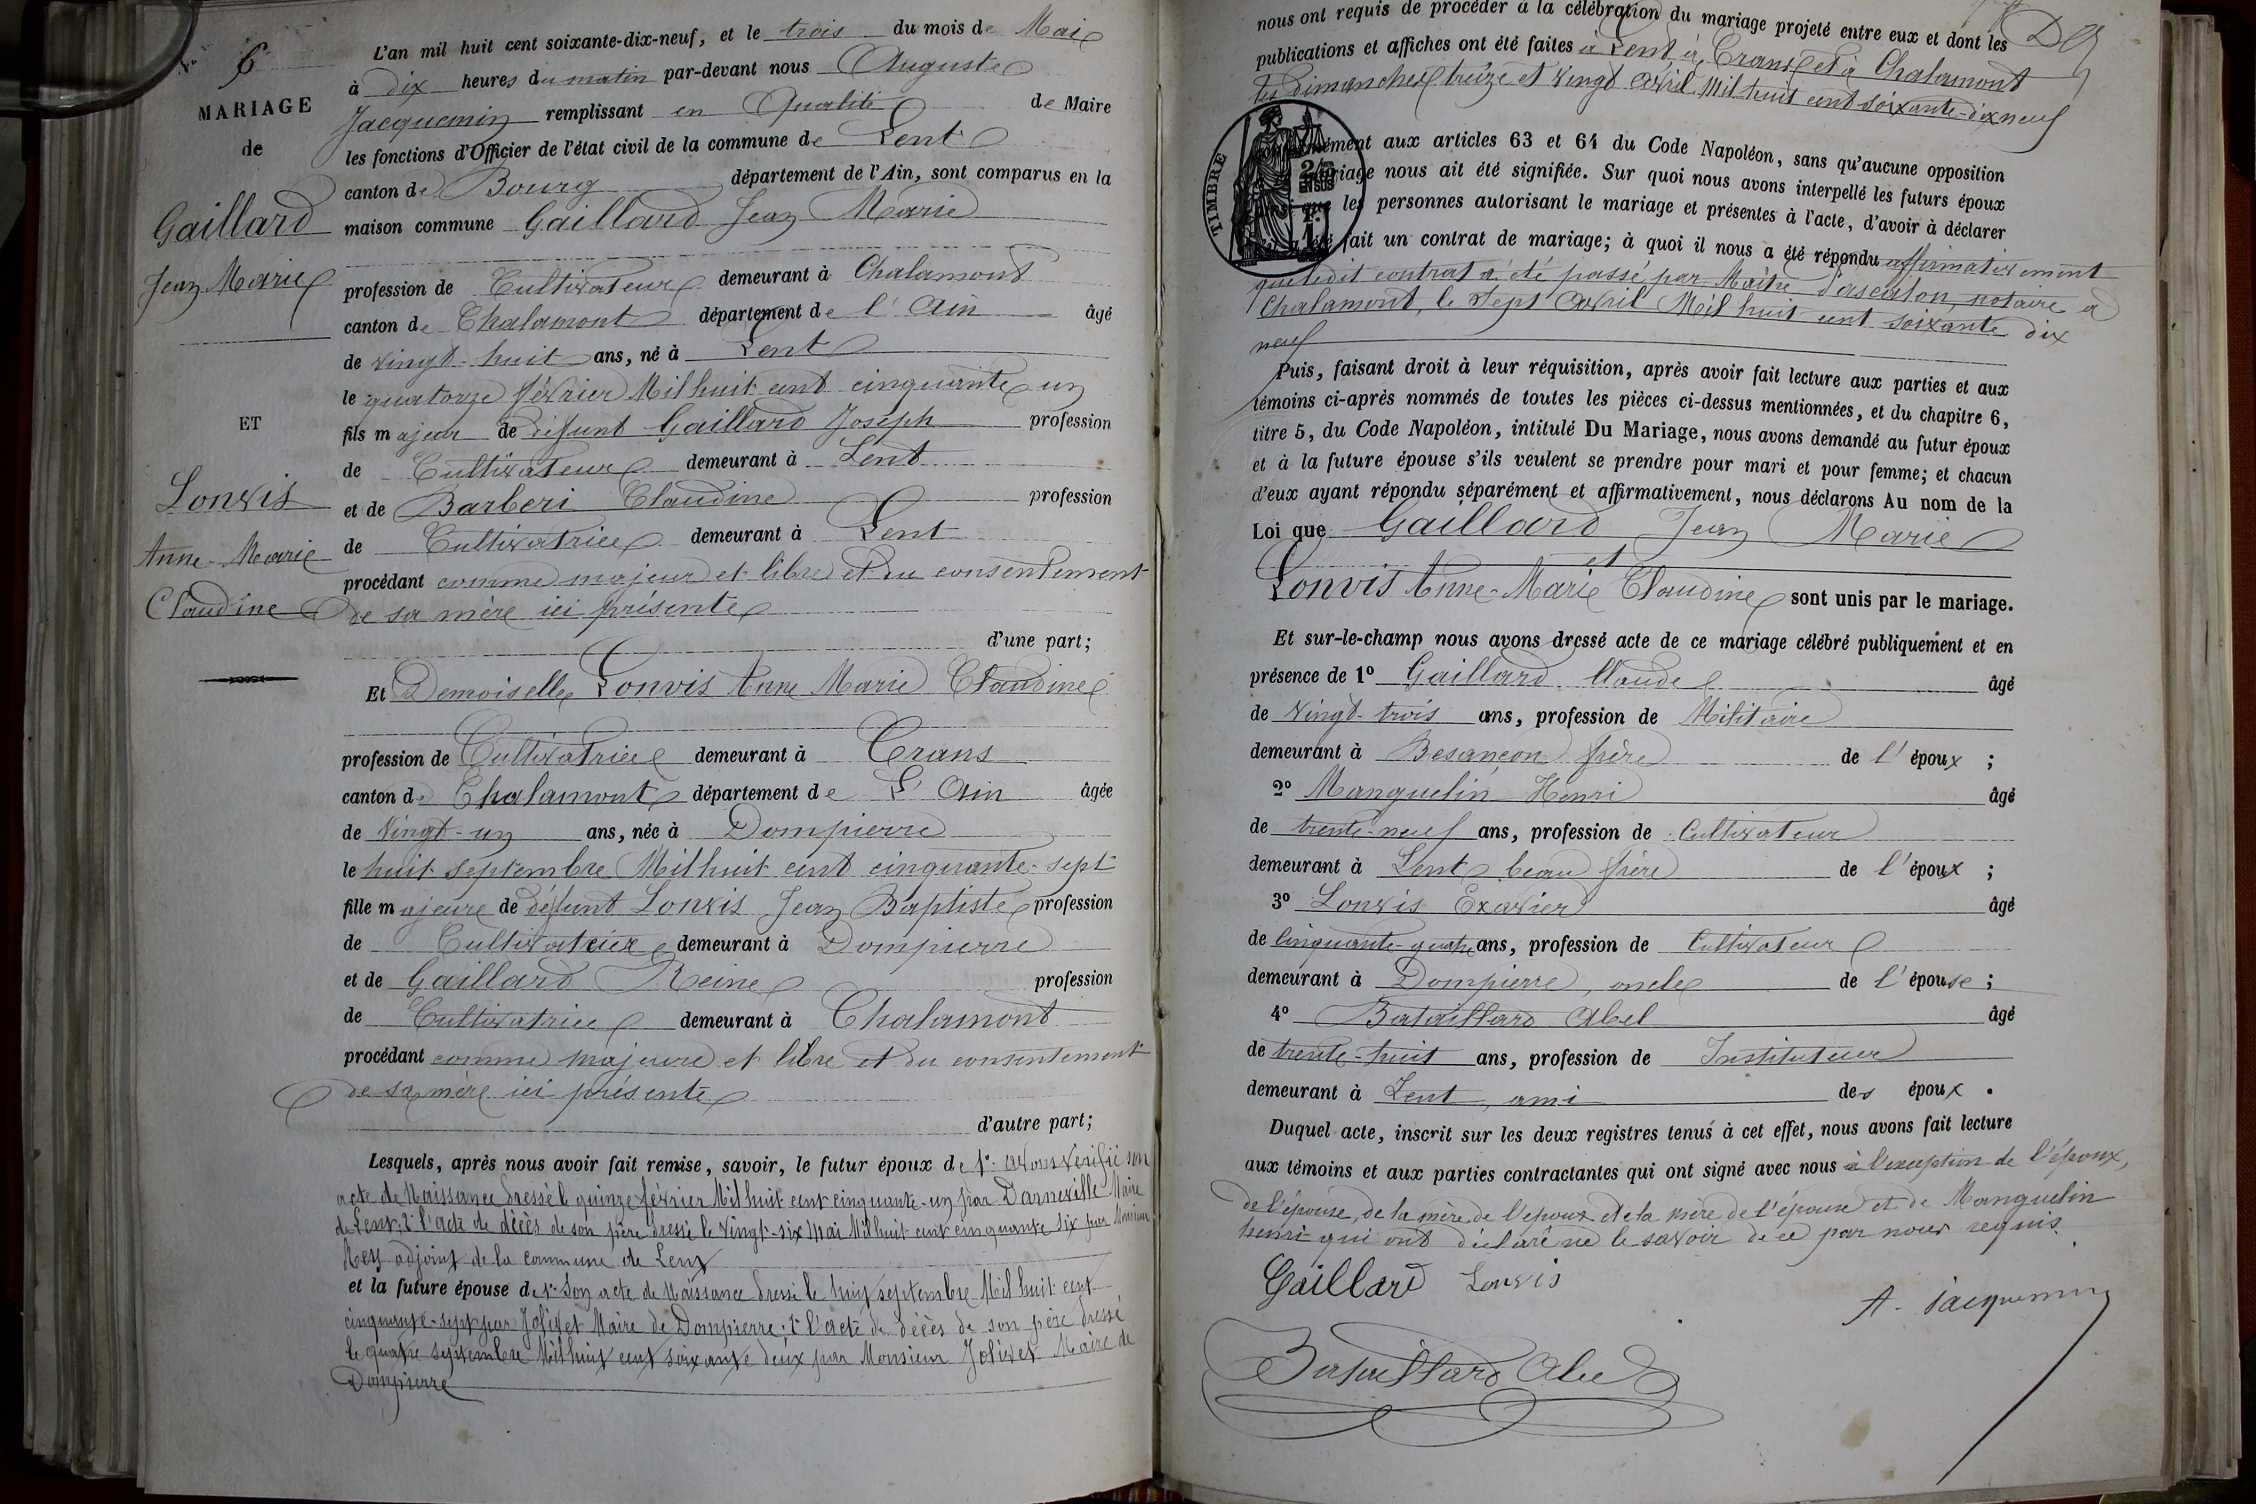 N° 6
MARIAGE
de
Gaillard
Jean Marie
ET
Lonvis
Anne-Marie
Claudine
L'an mil huit cent soixante-dix-neuf, et le trois du mois de Mai
à dix heures du matin par-devant nous Auguste
Jacquemin remplissant en Qualité de Maire
les fonctions d'Officier de l'état civil de la commune de Lent
canton de Bourg département de l'Ain, sont comparus en la
maison commune Gaillard Jean Marie
profession de Cultivateur demeurant à Chalamont
canton de Chalamont département de l'Ain âgé
de vingt-huit ans, né à Lent
le quatorze février Mil huit cent cinquante un
fils majeur de défunt Gaillard Joseph profession
de Cultivateur demeurant à Lent
et de Barberi Claudine profession
de Cultivatrice demeurant à Lent
procédant comme majeur et libre et du consentement
de sa mère ici présente
d'une part;
Et Demoiselle Lonvis Anne Marie Claudine
profession de Cultivatrice demeurant à Crans
canton de Chalamont département de L'Ain âgée
de Vingt-un ans, née à Dompierre
le huit septembre Mil huit cent cinquante-sept
fille majeure de défunt Lonvis Jean Baptiste profession
de Cultivateur demeurant à Dompierre
et de Gaillard Reine profession
de Cultivatrice demeurant à Chalamont
procédant comme majeure et libre et du consentement
de sa mère ici présente
d'autre part;
Lesquels, après nous avoir fait remise, savoir, le futur époux de 1° avons vérifié son
acte de Naissance dressé le quinze février Mil huit cent cinquante-un par Darneville Maire
de Lent; 2° l'acte de décès de son père dressé le vingt-six mai Mil huit cent cinquante six par Monsieur
Rey adjoint de la commune de Lent
et la future épouse de 1° Son acte de Naissance dressé le huit septembre Mil huit cent
cinquante-sept par Jolivet Maire de Dompierre; 2° l'acte de décès de son père dressé
le quatre septembre Mil huit cent soixante deux par Monsieur Jolivet Maire de
Dompierre
nous ont requis de procéder à la célébration du mariage projeté entre eux et dont les
publications et affiches ont été faites à Lent, à Crans et à Chalamont
les dimanches treize et vingt avril Mil huit cent soixante-dix neuf
TIMBRE
aux articles 63 et 64 du Code Napoléon, sans qu'aucune opposition
mariage nous ait été signifiée. Sur quoi nous avons interpellé les futurs époux
que les personnes autorisant le mariage et présentes à l'acte, d'avoir à déclarer
fait un contrat de mariage; à quoi il nous a été répondu affirmativement
que ledit contrat a été passé par Maître notaire à
Chalamont, le sept avril Mil huit cent soixante dix
neuf
Puis, faisant droit à leur réquisition, après avoir fait lecture aux parties et aux
témoins ci-après nommés de toutes les pièces ci-dessus mentionnées, et du chapitre 6,
titre 5, du Code Napoléon, intitulé Du Mariage, nous avons demandé au futur époux
et à la future épouse s'ils veulent se prendre pour mari et pour femme; et chacun
d'eux ayant répondu séparément et affirmativement, nous déclarons Au nom de la
Loi que Gaillard Jean Marie
et
Lonvis Anne-Marie Claudine sont unis par le mariage.
Et sur-le-champ nous avons dressé acte de ce mariage célébré publiquement et en
présence de 1° Gaillard Claude âgé
de vingt-trois ans, profession de Militaire
demeurant à Besançon frère de l'époux ;
2° Manguelin Henri âgé
de trente-neuf ans, profession de Cultivateur
demeurant à Lent beau frère de l'époux ;
3° Lonvis Exavier âgé
de cinquante-quatre ans, profession de Cultivateur
demeurant à Dompierre, oncle de l'épouse ;
4° Bataillard Abel âgé
de trente-huit ans, profession de Instituteur
demeurant à Lent, ami des époux .
Duquel acte, inscrit sur les deux registres tenus à cet effet, nous avons fait lecture
aux témoins et aux parties contractantes qui ont signé avec nous à l'exception de l'époux,
de l'épouse, de la mère de l'époux et de la mère de l'épouse et de Manguelin
henri qui ont déclaré ne le savoir de ce par nous requis.
Gaillard Lonvis
A. Jacquemin
Bataillard Abel